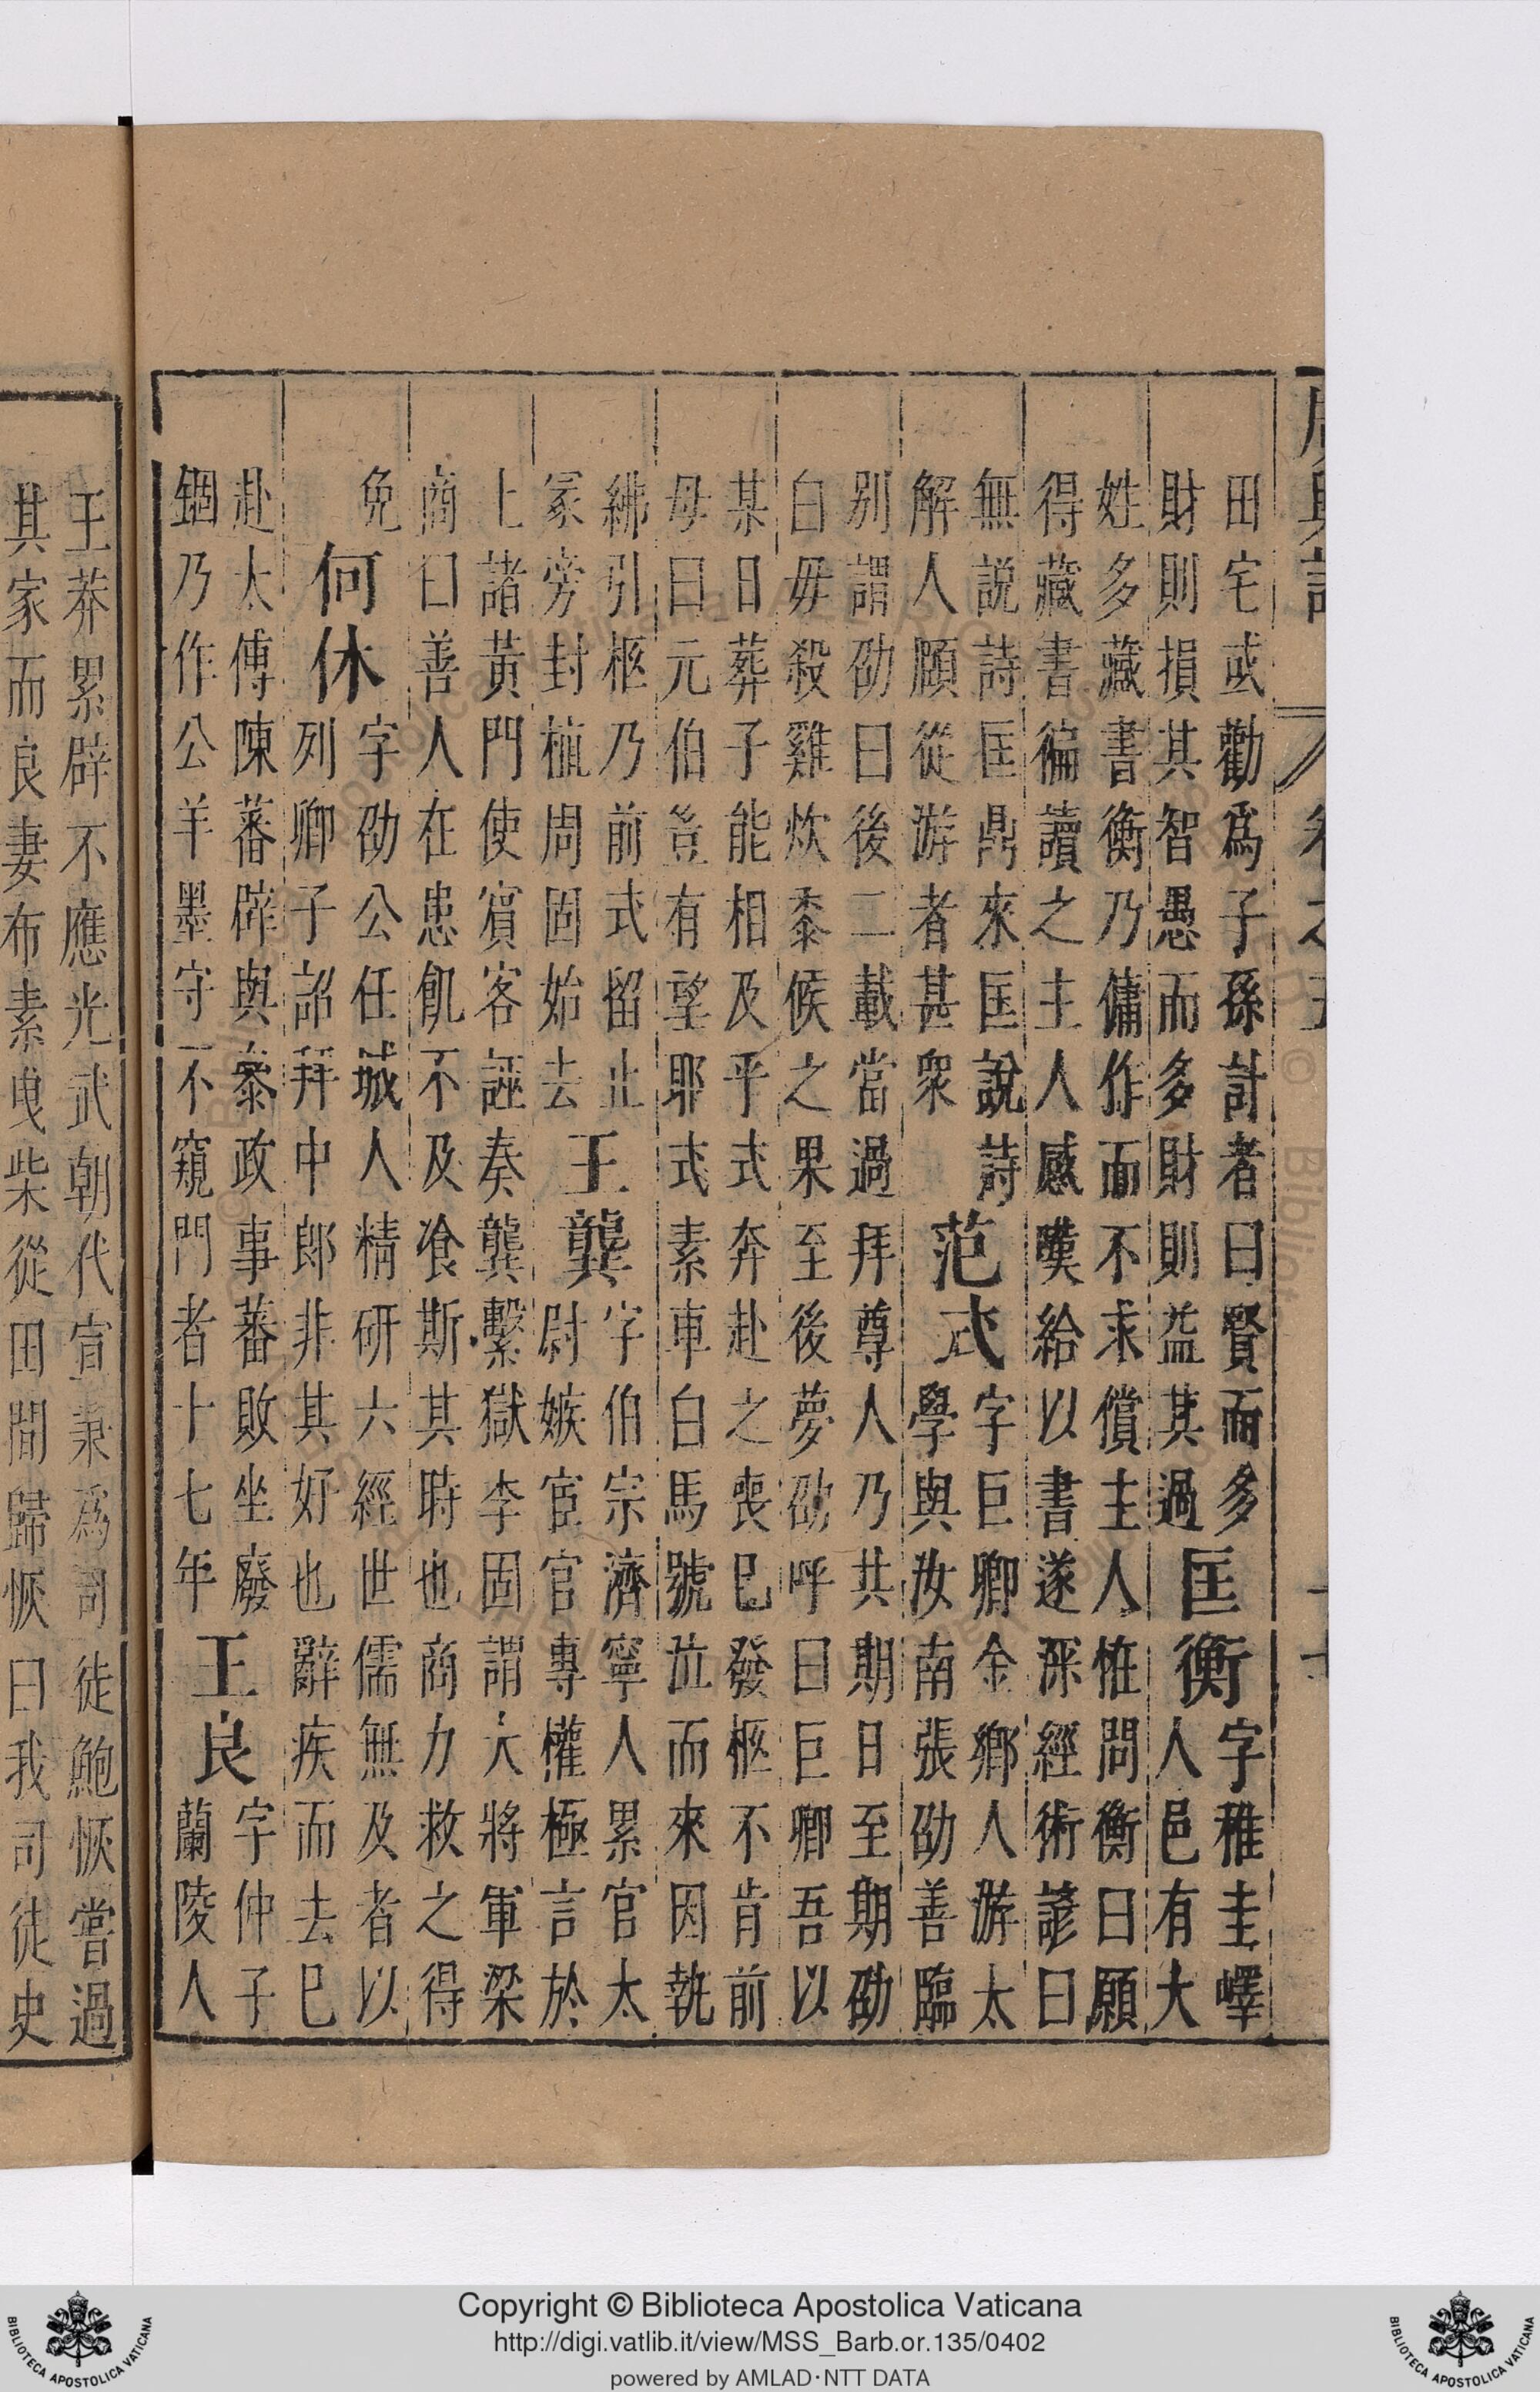 田宅或勸爲子孫計者曰賢而多
財則損其智愚而多財則益其過
匡衡
字稚圭嶧
人邑有大
姓多藏書衡乃傭作而不求償主人恠問衡曰願
得藏書徧讀之主人感嘆給以書遂深經術諺曰
無說詩匡鼎來匡說詩
解人頤從游者甚衆
范式
字巨卿金鄉人游太
學與汝南張劭善臨
別謂劭曰後二載當過拜尊人乃共期日至期劭
白毋殺雞炊黍候之果至後夢劭呼曰巨卿吾以
某日葬子能相及乎式奔赴之喪巳發柩不肯前
母曰元伯豈有望耶式素車白馬號泣而來因執
紼引柩乃前式留止
冢旁封植周固始去
王龔
字伯宗濟寧人累官太
尉嫉宦官專權極言於
上諸黃門使賓客誣奏龔繫獄李固謂大將軍梁
商曰善人在患飢不及飡斯其時也商力救之得
免
何休
字劭公任城人精研六經世儒無及者以
列卿子詔拜中郎非其好也辭疾而去巳
赴太傅陳蕃辟與叅政事蕃敗坐廢
錮乃作公羊墨守不窺門者十七年
王良
字仲子
蘭陵人
王莽累辟不應光武朝代宣秉爲司徒鮑恢嘗過
其家而良妻布素曳柴從田間歸恢曰我司徒史
Copyright © Biblioteca Apostolica Vaticana
http://digi.vatlib.it/view/MSS_Barb.or.135/0402
powered by AMLAD·NTT DATA
BIBLIOTECA APOSTOLICA VATICANA
BIBLIOTECA APOSTOLICA VATICANA